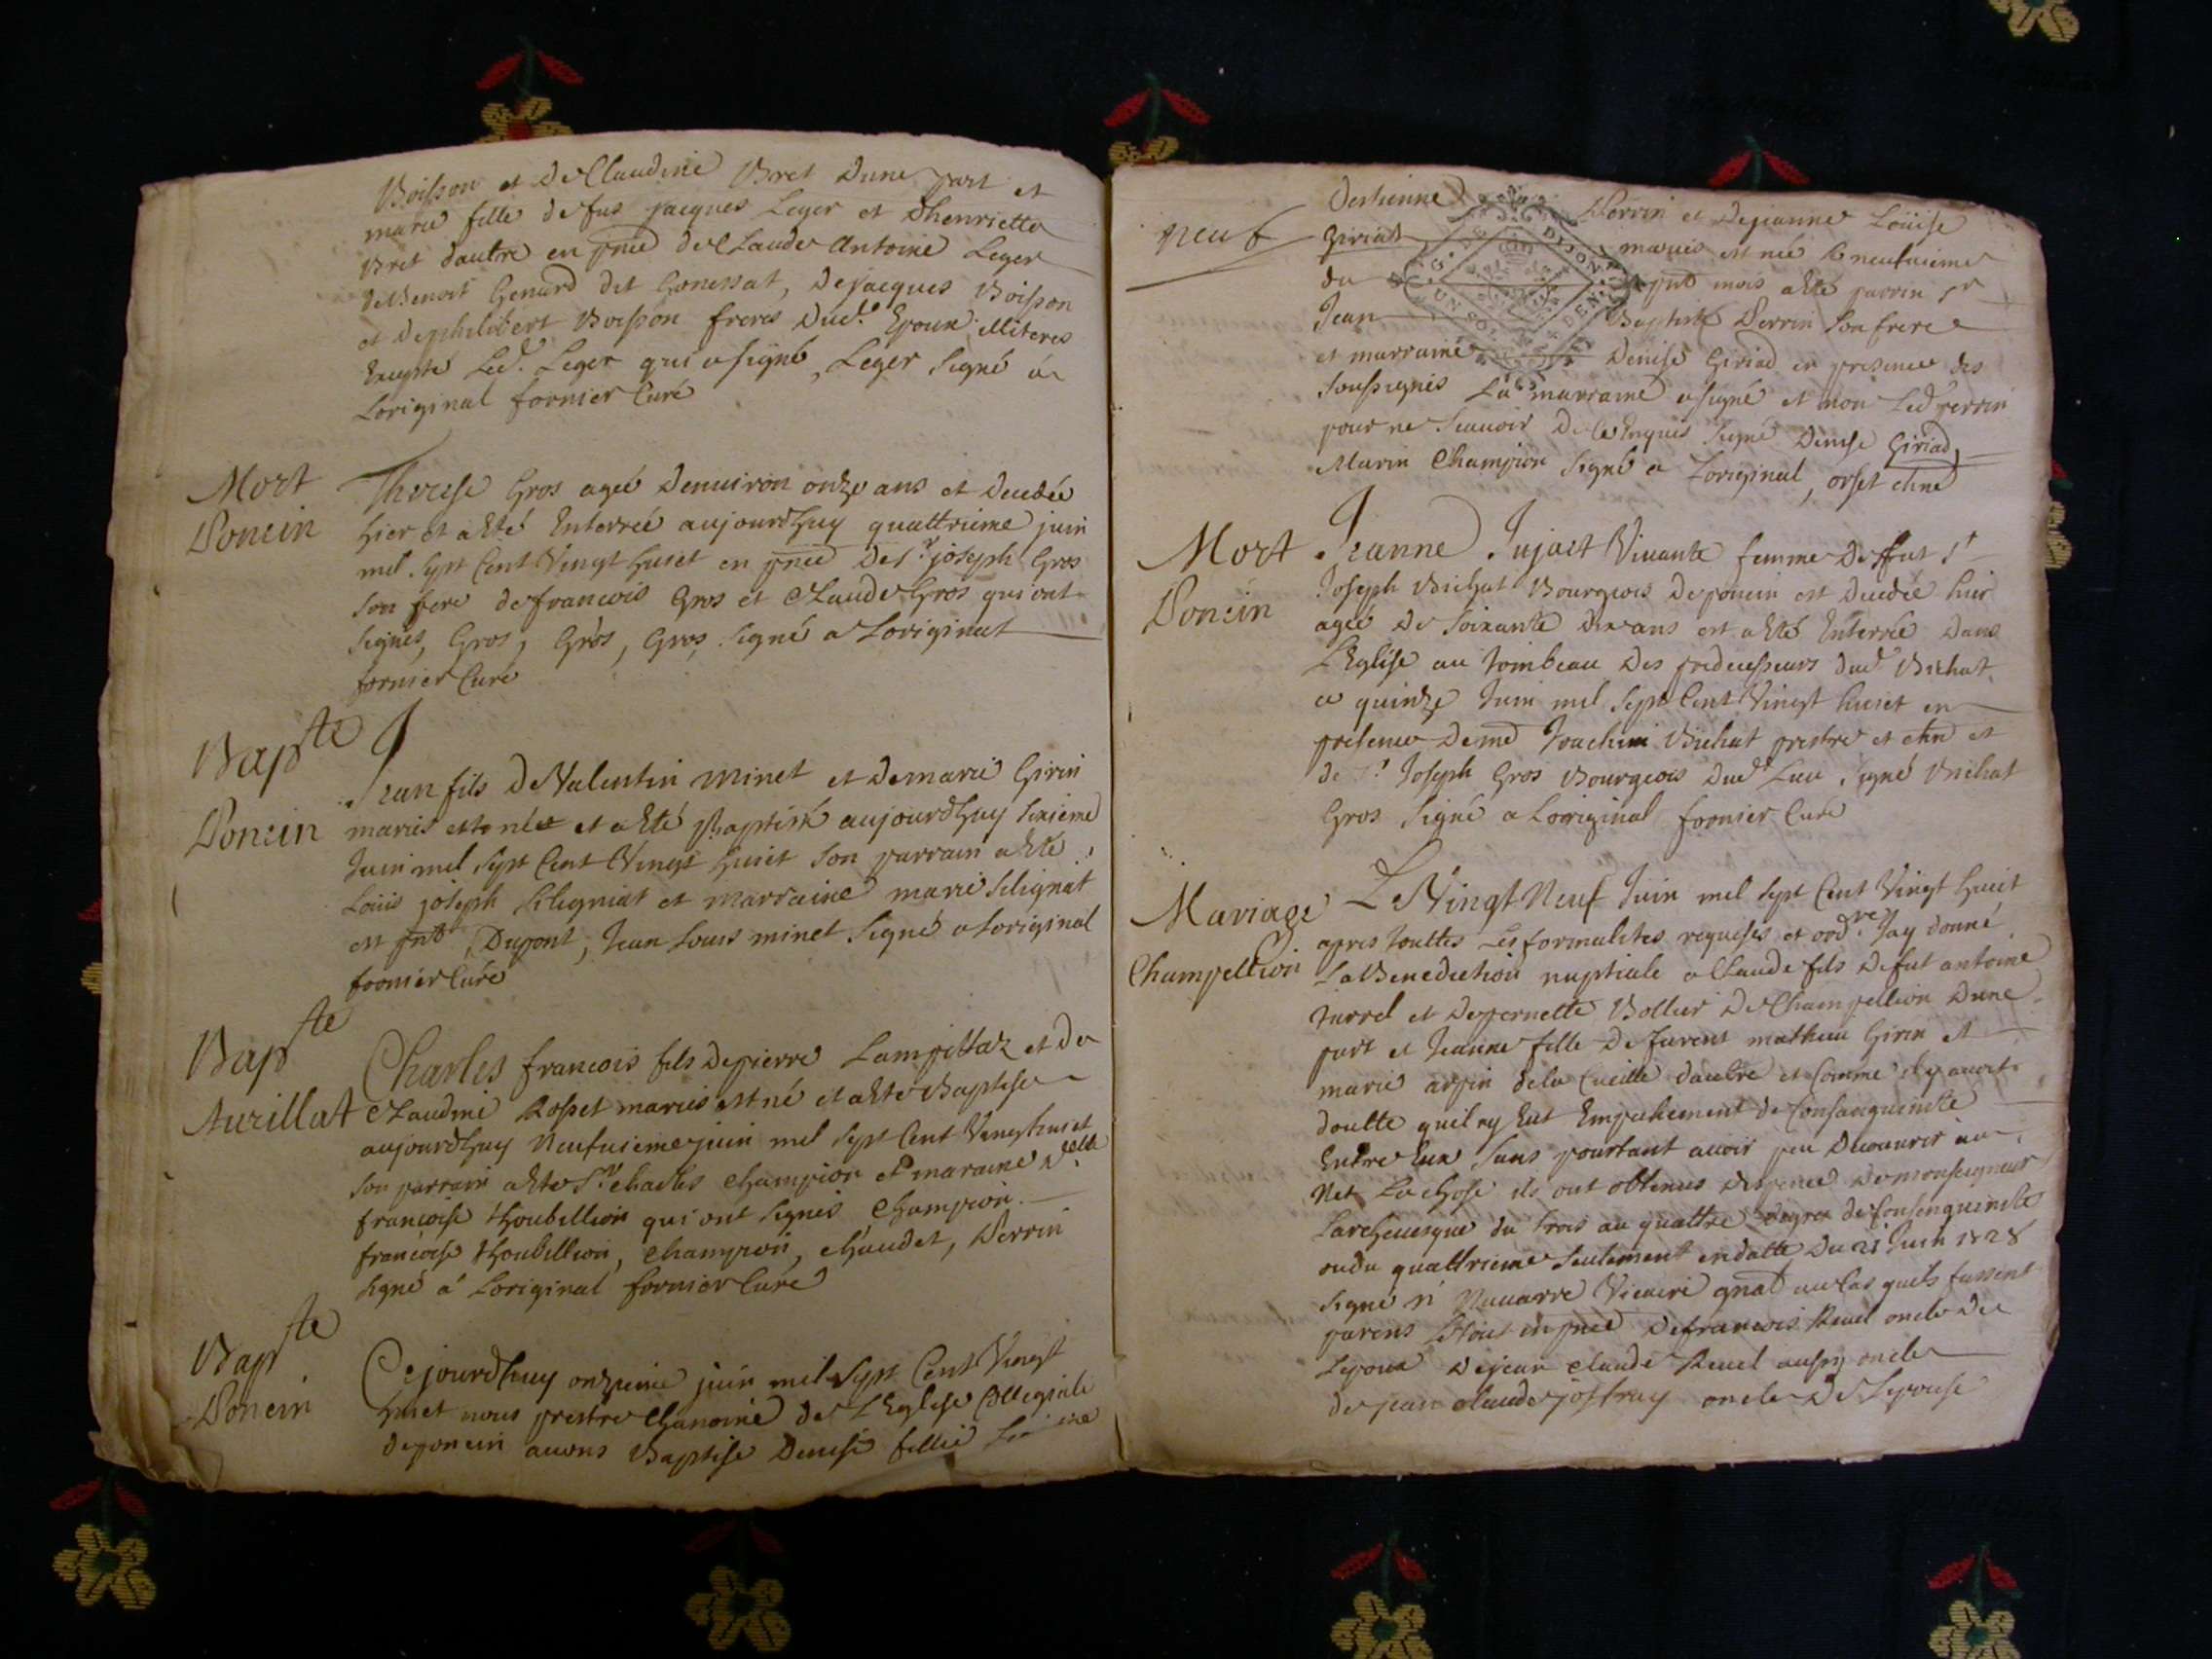 Boisson et De Claudine Bret Dune part et
marie fille de fus jacques Leger et Dhenriette
Bret dautre en pnce de Claude Antoine Leger
de Benoit Genard dit Gonessat, De jacques Boisson
et De philibert Boisson freres Dud. Epoux illiteres
Excepté Led. Leger qui a signé, Leger signé a
Loriginal fornier Curé
Mort
Poncin
Therese Gros ageé Denuiron onze ans et Decedée
hier et a Eté Enterreé aujourdhuy quattrieme juin
mil sept Cent Vingt huict en pnce De Sr. joseph Gros
son pere de francois Gros et Claude Gros qui ont
signés, Gros, Gros, Gros signé a Loriginal
fornier Curé
Bapte
Poncin
Jean fils De Valentin Minet et De marie Girin
mariés est né et a Eté Baptisé aujourdhuy sixieme
Juin mil sept Cent Vingt huict son parrain a Eté
Loüis joseph Siligniat et marraine marie Silignat
est pnt Dupont, Jean Louis minet signé a Loriginal
fornier Curé
Bapte
Aurillat
Charles francois fils De pierre Lampittaz et De
Claudine Rosset mariés est né et a Eté Baptisé
aujourdhuy Neufuieme juin mil sept Cent Vingt huict
son parrain a Eté Sr. Charles Champion et maraine Delle
francoise Thoubillion qui ont signés Champion.
francoise Thoubillion, Champion, Chaudet, Perrin
signé á Loriginal fornier Curé
Bapte
Poncin
Ce jourdhuy onzieme juin mil sept Cent Vingt
huict nous prestre Chanoine de L'Eglise Collegiale
de poncin auons Baptise Denise fillie
neuf
Destienne Perrin et De jeanne Loüise
Giriat mariés est neé le neufuieme
du pnt mois a Eté parrin Sr
Jean Baptiste Perrin son frere
et marraine Denise Giriad en presence des
soussignés La marraine a signé et non Led. perrin
pour ne scauoir De ce Enquis signé Denise Giriad,
Marin Champion signé a Loriginal, orset chne
Mort
Poncin
Jeanne Jujact Viuante femme De feu Sr
Joseph Bichat Bourgeois De poncin est Decedée hier
ageé De soixante Dix ans et a Eté Enterrée Dans
L'Eglise au tombeau Des predecesseurs Dud. Bichat
ce quinze Juin mil sept Cent Vingt huict en
presence De me Joachim Bichat prestre et chne et
de Sr. Joseph Gros Bourgeois Dud. Lieu signé Bichat
Gros signé a Loriginal fornier Curé
Mariage
Champellion
Le Vingt Neuf Juin mil sept Cent Vingt huict
apres touttes Les formalités requises et ordre. Jay donné
La Benediction nuptiale a Claude fils de fut antoine
Jurrel et De pernette Bollier De Champellion Dune
part et Jeanne fille De furent matheu Girin et
marie arpin de la Cueille dautre et Comme il y auoit
doutte quil ny Eut Empechement de Consanguinité
Entre Eux sans pourtant auoir peu Decouurir au
Net La Chose ils ont obtenus Dispence De monseigneur
Larcheuesque du trois au quattre Degrez de Consanguinité
ou du quattrieme seulement en datte Du 21 Juin 1728
signé Nauarre Vicaire gnal au Cas quils fussent
parens Le tout en pnce De francois Reuel oncle De
Lepoux De jean Claude Reuel aussy oncle
de jean Claude joffray oncle De Lepouse